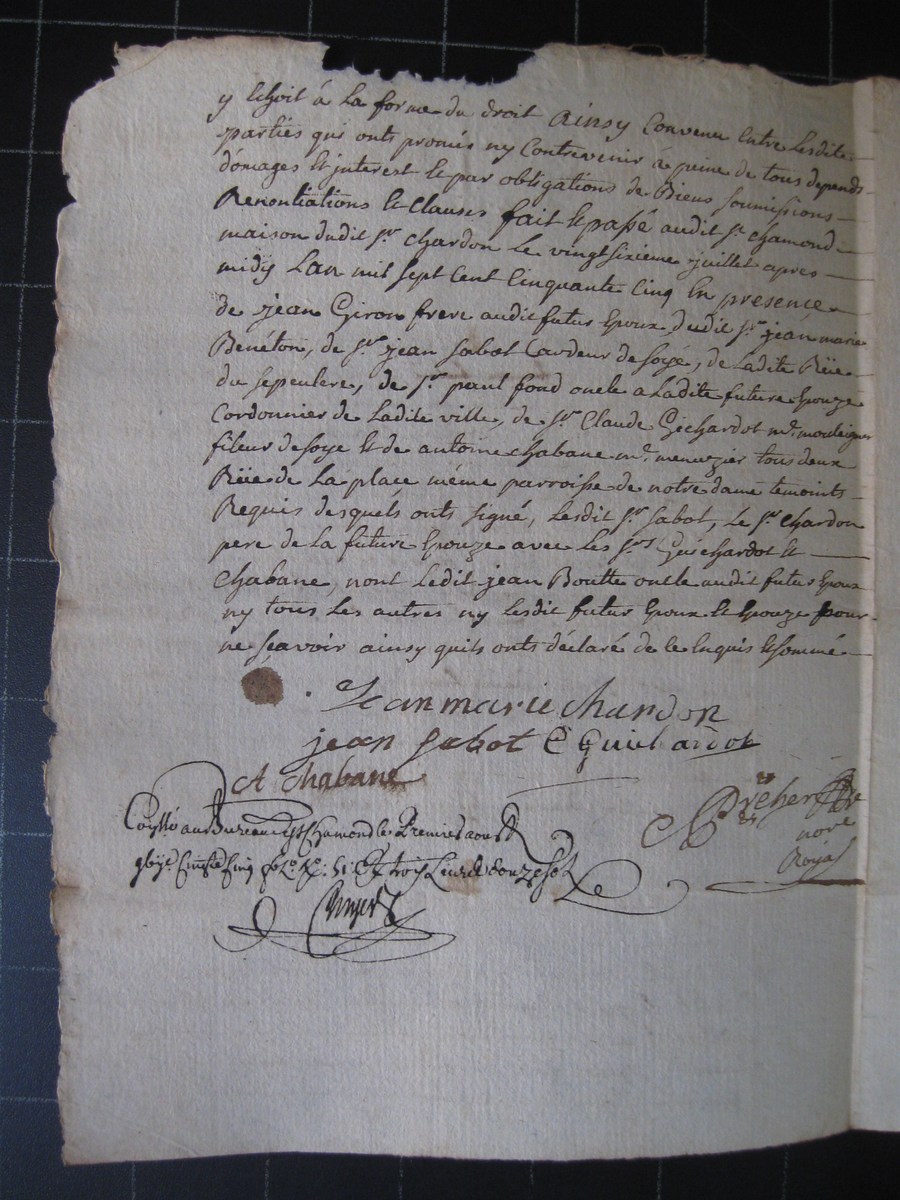 y Echoit à la forme du droit Ainsy Convenu entre lesdites
parties qui onts promis ny Contrevenir à peine de tous depends
domages & interest & par obligations de Biens soumissions
Renontiations & clauses fait & passé audit St. chamond
maison dudit sr. chardon le vingt sixieme juillet apres
midy Lan mil sept Cent Cinquante Cinq En presence
de jean Giron frere audit futur Epoux, dudit sr. jean marie
Benéton, de sr. jean sabot Cardeur de soye, de Ladite Rüe
du sepculcre, de sr. paul fond oncle a Ladite future Epouze
Cordonnier de Ladite ville, de sr. Claude Gichardot md. moulignier
fileur de soye & de antoine Chabane md. menuzier tous deux
Rüe de La place même parroisse de notre dame temoints
Requis desquels onts signé, Lesdit sr. sabot, Le sr. chardon
pere de La future Epouze avec les srs. Guichardot &
Chabane, nont Ledit jean Boutte oncle audit futur Epoux
ny tous Les autres ny Lesdit futur Epoux & Epouze pour
ne sçavoir ainsy quils onts déclaré de ce Enquis & sommé
Jean marie Chardon
jean Sabot C Guichardot
A Chabane
note
Royal
au Bureau de St Chamond le Premier aoust
Cinqte Cinq trois Livres douze sols